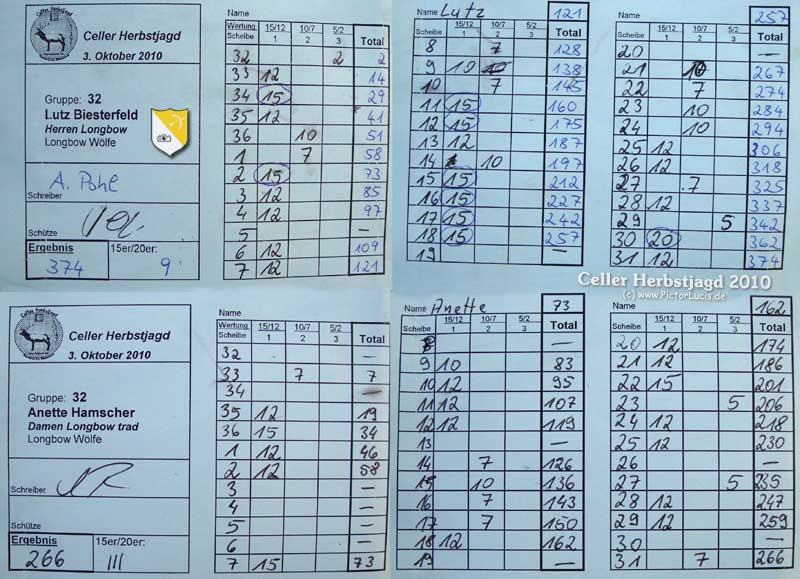 Celler Herbstjagd
3. Oktober 2010
Gruppe: 32
Lutz Biesterfeld
Herren Longbow
Longbow Wölfe
A. Pohl
Schreiber
Schütze
Ergebnis 15er/20er:
374 9
Name
Wertung 15/12 10/7 5/2 Total
Scheibe 1 2 3
32 2 2
33 12 14
34 15 29
35 12 41
36 10 51
1 7 58
2 15 73
3 12 85
4 12 97
5 —
6 12 109
7 12 121
Name Lutz 121
15/12 10/7 5/2 Total
Scheibe 1 2 3
8 7 128
9 10 138
10 7 145
11 15 160
12 15 175
13 12 187
14 10 197
15 15 212
16 15 227
17 15 242
18 15 257
19 —
257
15/12 10/7 5/2 Total
1 2 3
20 —
21 10 267
22 7 274
23 10 284
24 10 294
25 12 306
26 12 318
27 7 325
28 12 337
29 5 342
30 20 362
31 12 374
Celler Herbstjagd 2010
(c) www.PictorLucis.de
Celler Herbstjagd
3. Oktober 2010
Gruppe: 32
Anette Hamscher
Damen Longbow trad
Longbow Wölfe
Schreiber
Schütze
Ergebnis 15er/20er:
266 III
Name
Wertung 15/12 10/7 5/2 Total
Scheibe 1 2 3
32 —
33 7 7
34 —
35 12 19
36 15 34
1 12 46
2 12 58
3 —
4 —
5 —
6 —
7 15 73
Name Anette 73
15/12 10/7 5/2 Total
Scheibe 1 2 3
8 —
9 10 83
10 12 95
11 12 107
12 12 119
13 —
14 7 126
15 10 136
16 7 143
17 7 150
18 12 162
19 —
162
15/12 10/7 5/2 Total
1 2 3
20 12 174
21 12 186
22 15 201
23 5 206
24 12 218
25 12 230
26 —
27 5 235
28 12 247
29 12 259
30 —
31 7 266